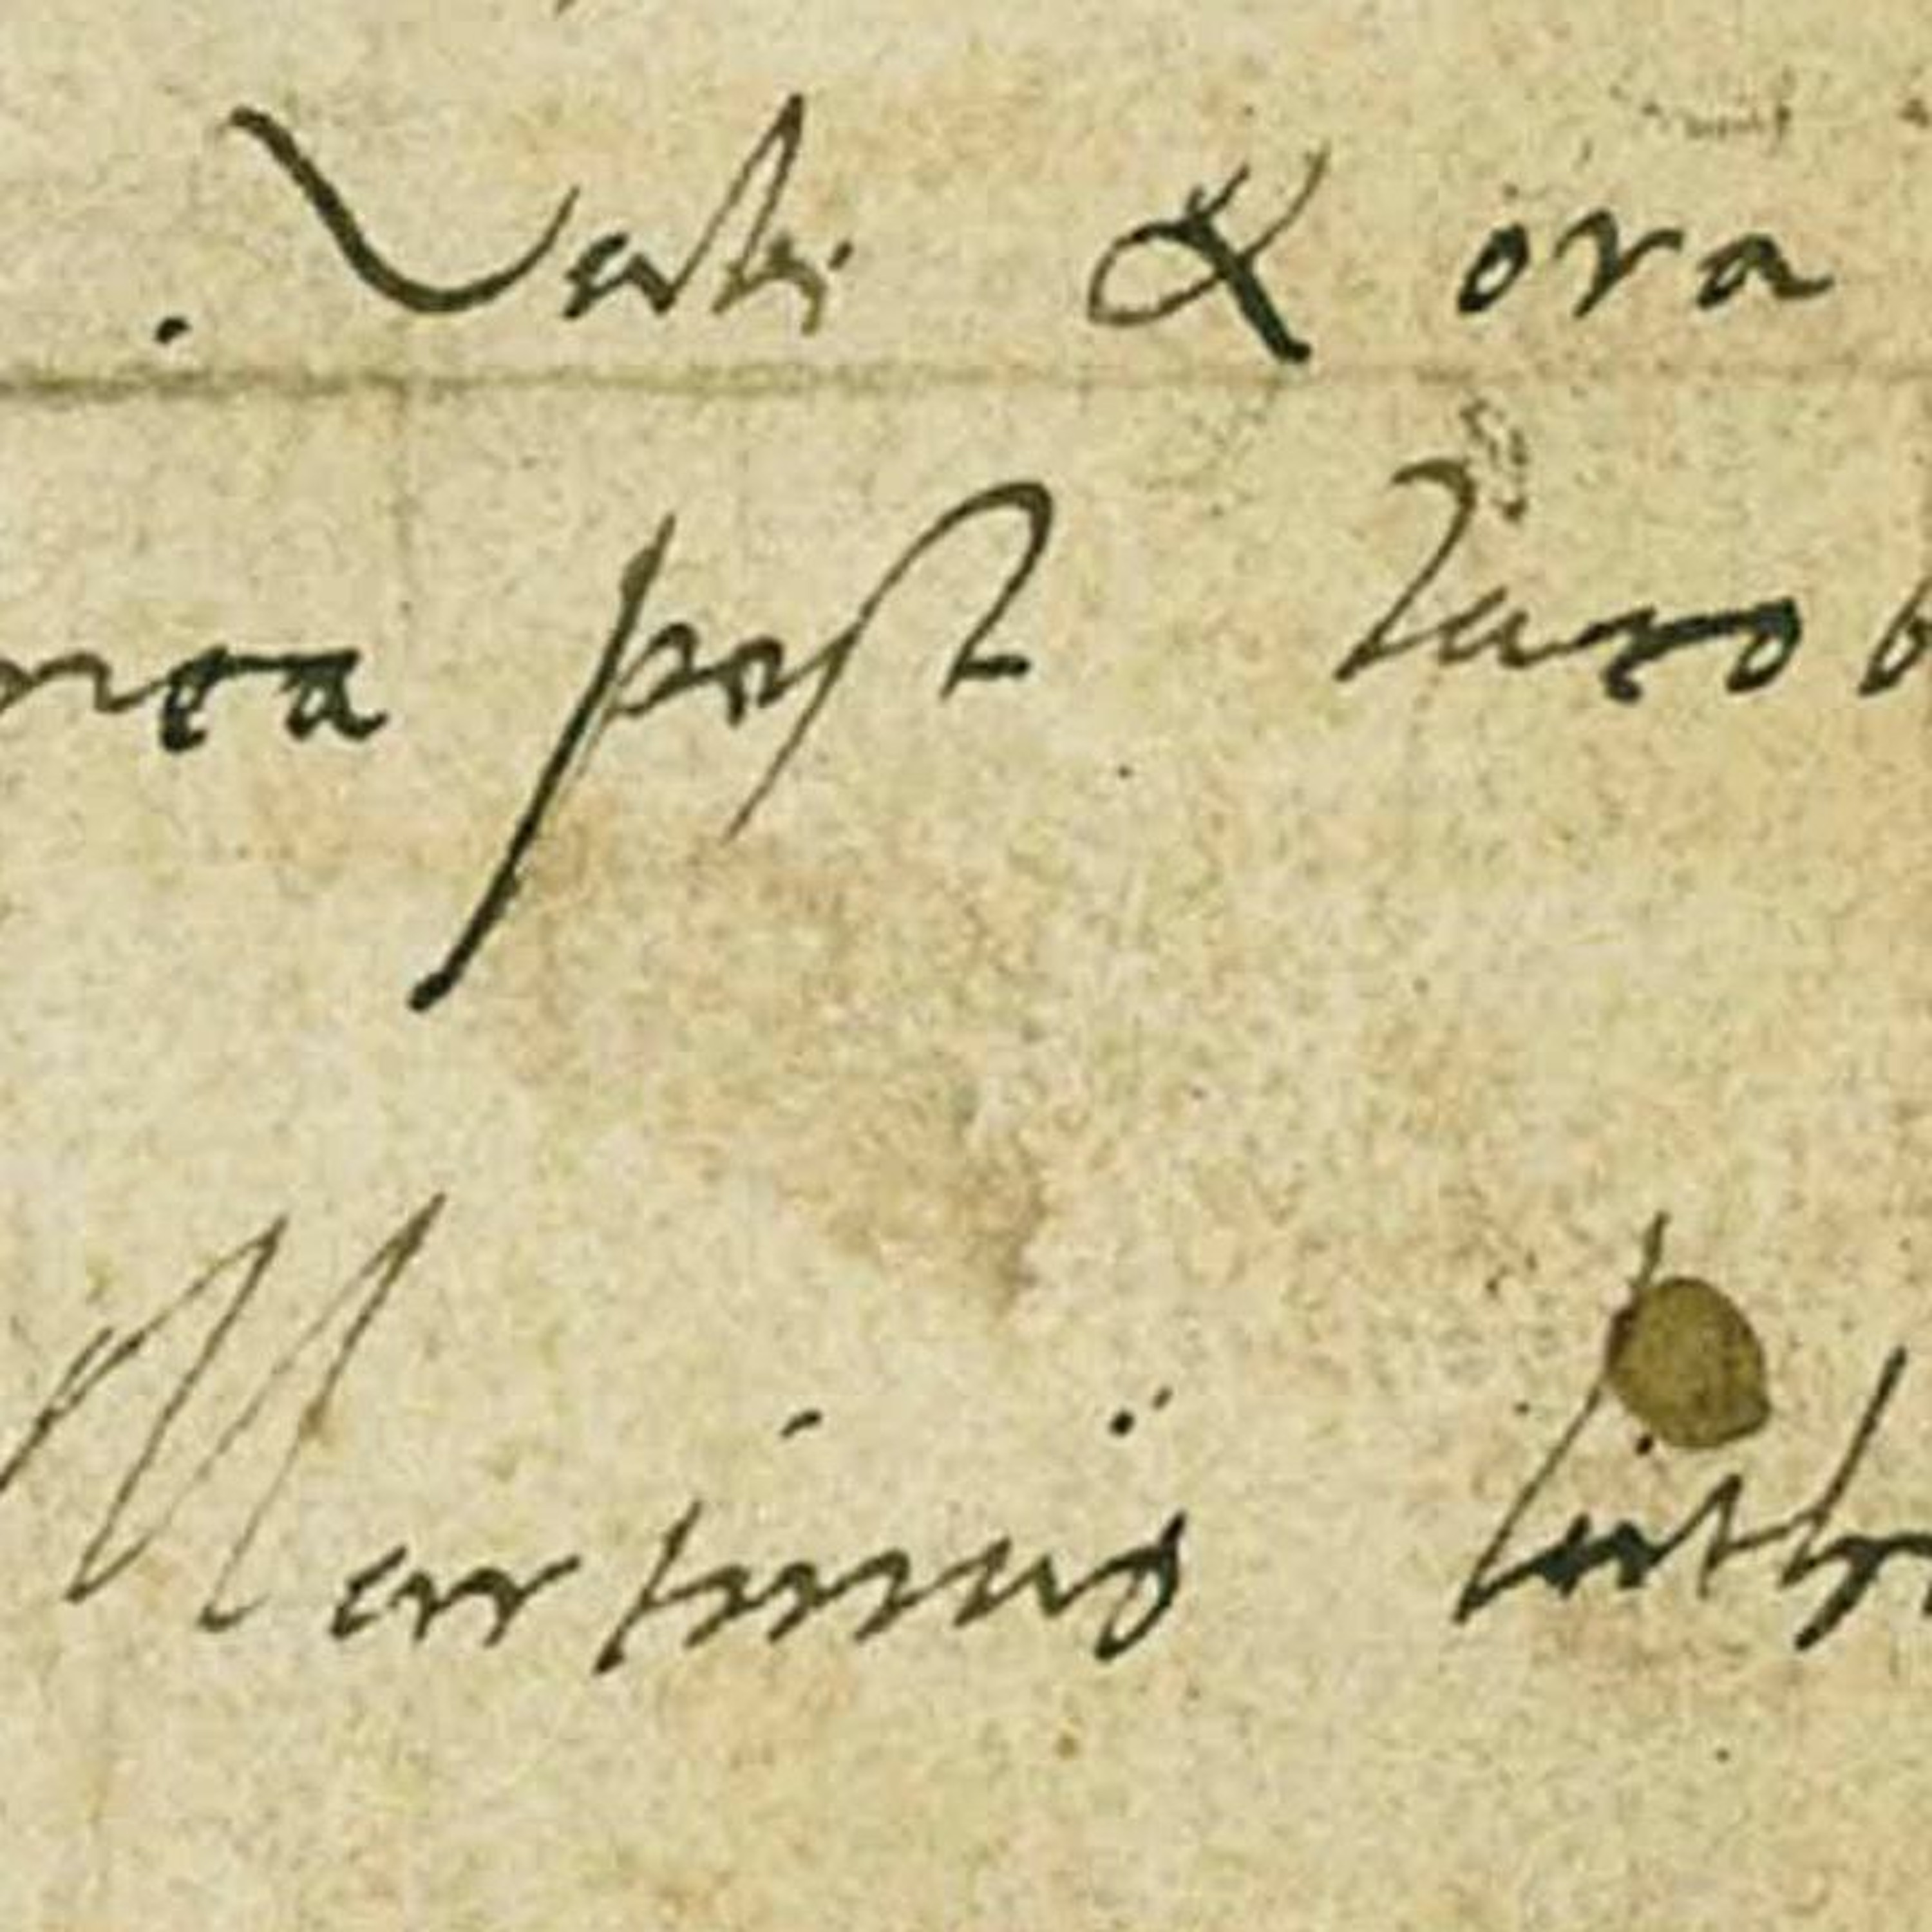 . Vale & ora
nea post Jacob
Martinus Luth